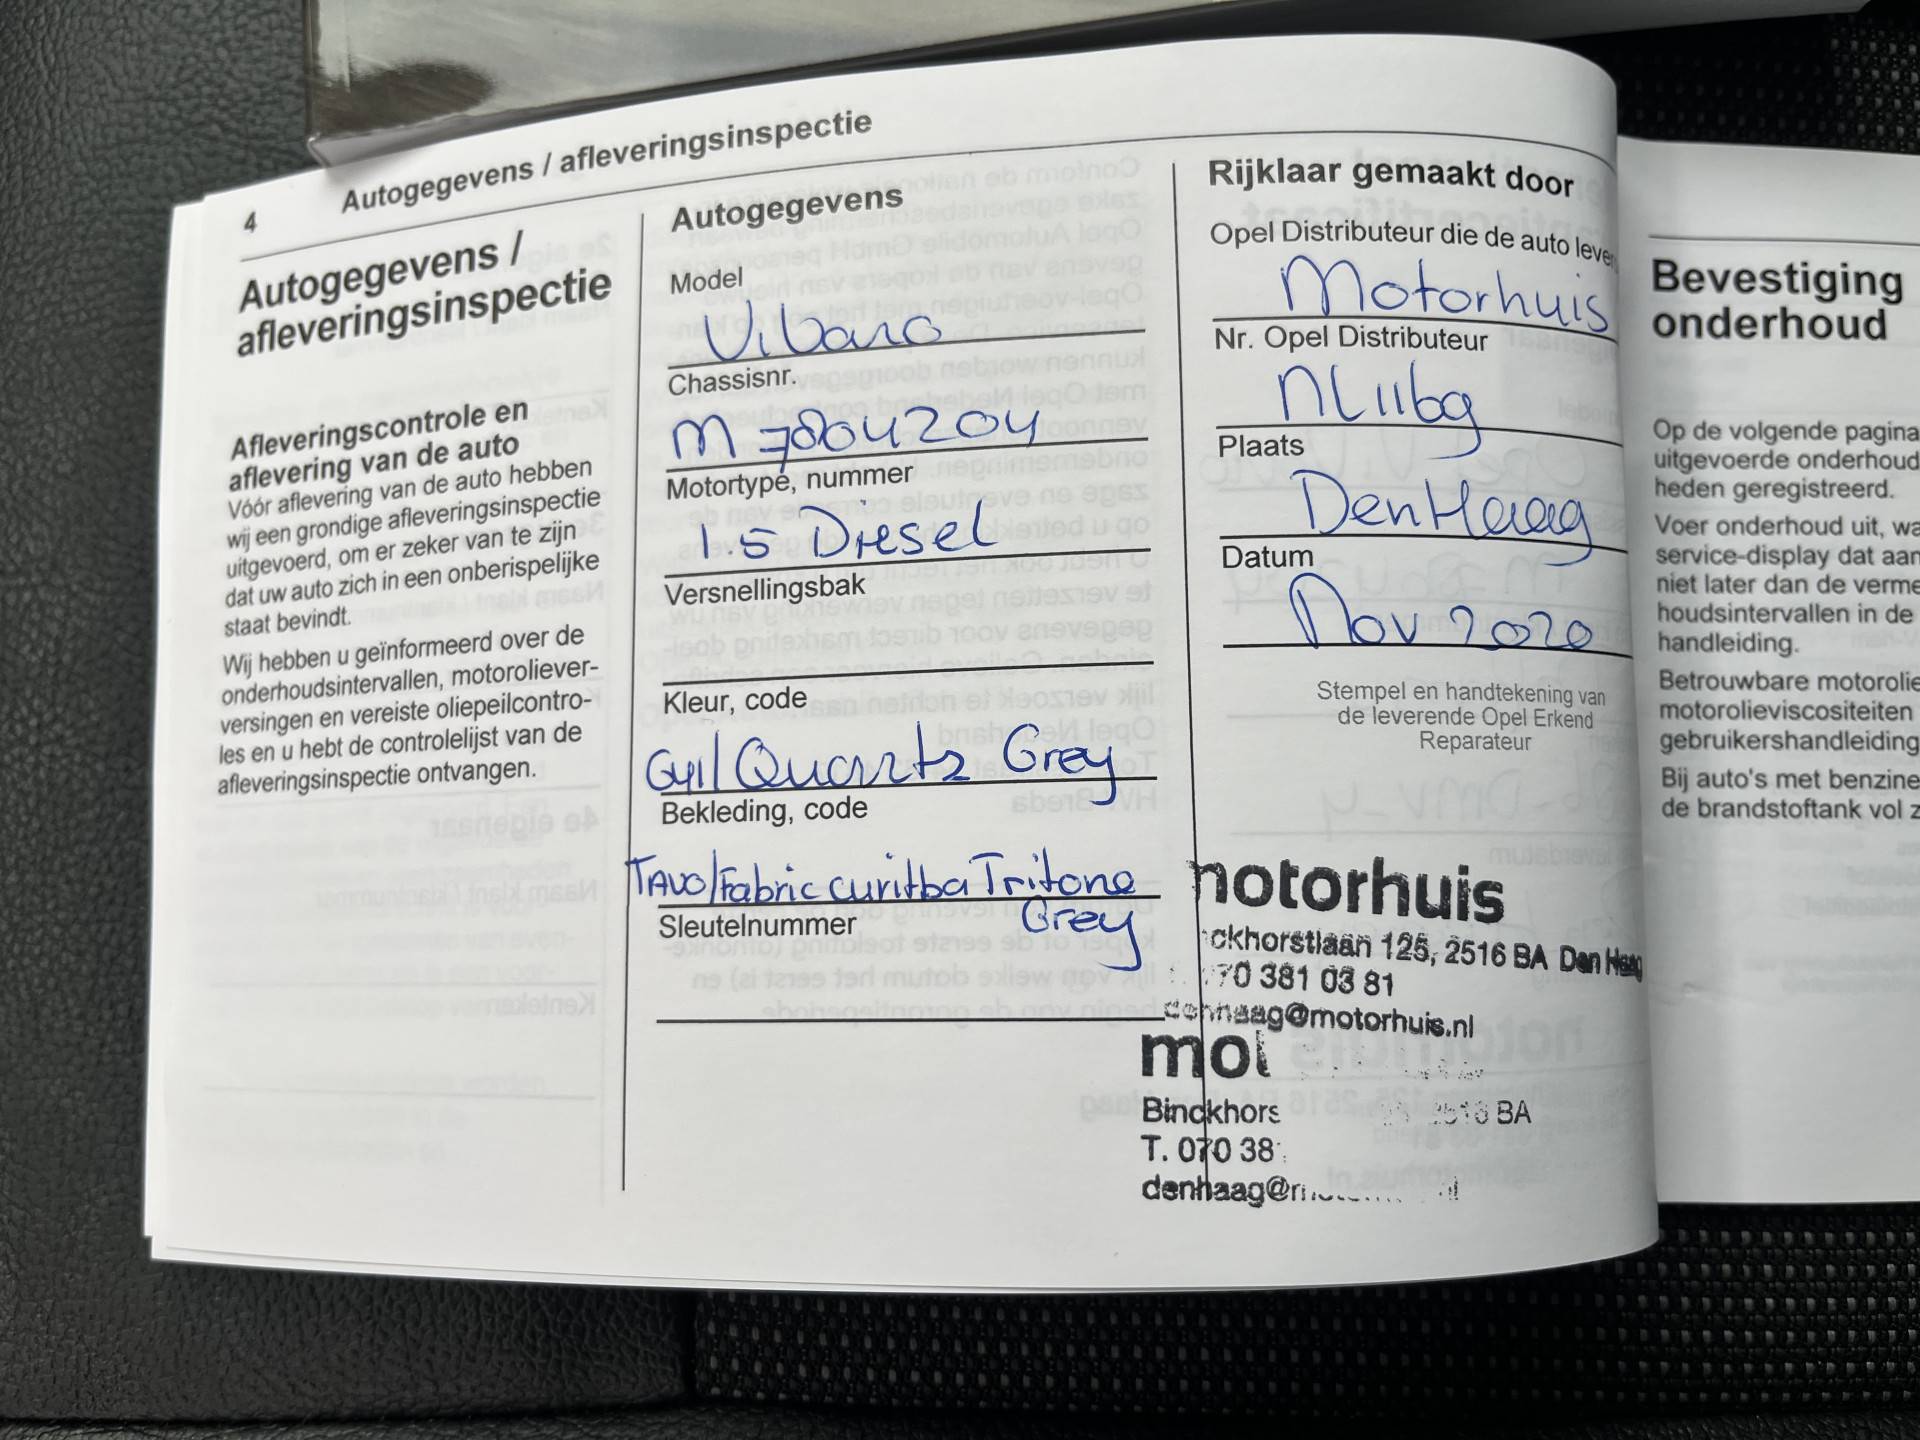 4
Autogegevens / afleveringsinspectie
Autogegevens /
afleveringsinspectie
Afleveringscontrole en
aflevering van de auto
Vóór aflevering van de auto hebben
wij een grondige afleveringsinspectie
uitgevoerd, om er zeker van te zijn
dat uw auto zich in een onberispelijke
staat bevindt.
Wij hebben u geïnformeerd over de
onderhoudsintervallen, motoroliever-
versingen en vereiste oliepeilcontro-
les en u hebt de controlelijst van de
afleveringsinspectie ontvangen.
Autogegevens
Model
Vivaro
Chassisnr.
M7804204
Motortype, nummer
1.5 Diesel
Versnellingsbak
Kleur, code
G41/Quartz Grey
Bekleding, code
TAVO/Fabric curitba Tritone
Grey
Sleutelnummer
Rijklaar gemaakt door
Opel Distributeur die de auto
Motorhuis
Nr. Opel Distributeur
NL116g
Plaats
Den Haag
Datum
Nov 2020
Stempel en handtekening van
de leverende Opel Erkend
Reparateur
motorhuis
ckhorstlaan 125, 2516 BA Den Haag
70 381 03 81
denhaag@motorhuis.nl
mot
Binckhors 2516 BA
T. 070 38
denhaag@
Bevestiging
onderhoud
Op de volgende pagina
uitgevoerde onderhoud
heden geregistreerd.
Voer onderhoud uit, wa
service-display dat aan
niet later dan de verme
houdsintervallen in de
handleiding.
Betrouwbare motorolie
motorolieviscositeiten
gebruikershandleiding
Bij auto's met benzine
de brandstoftank vol z